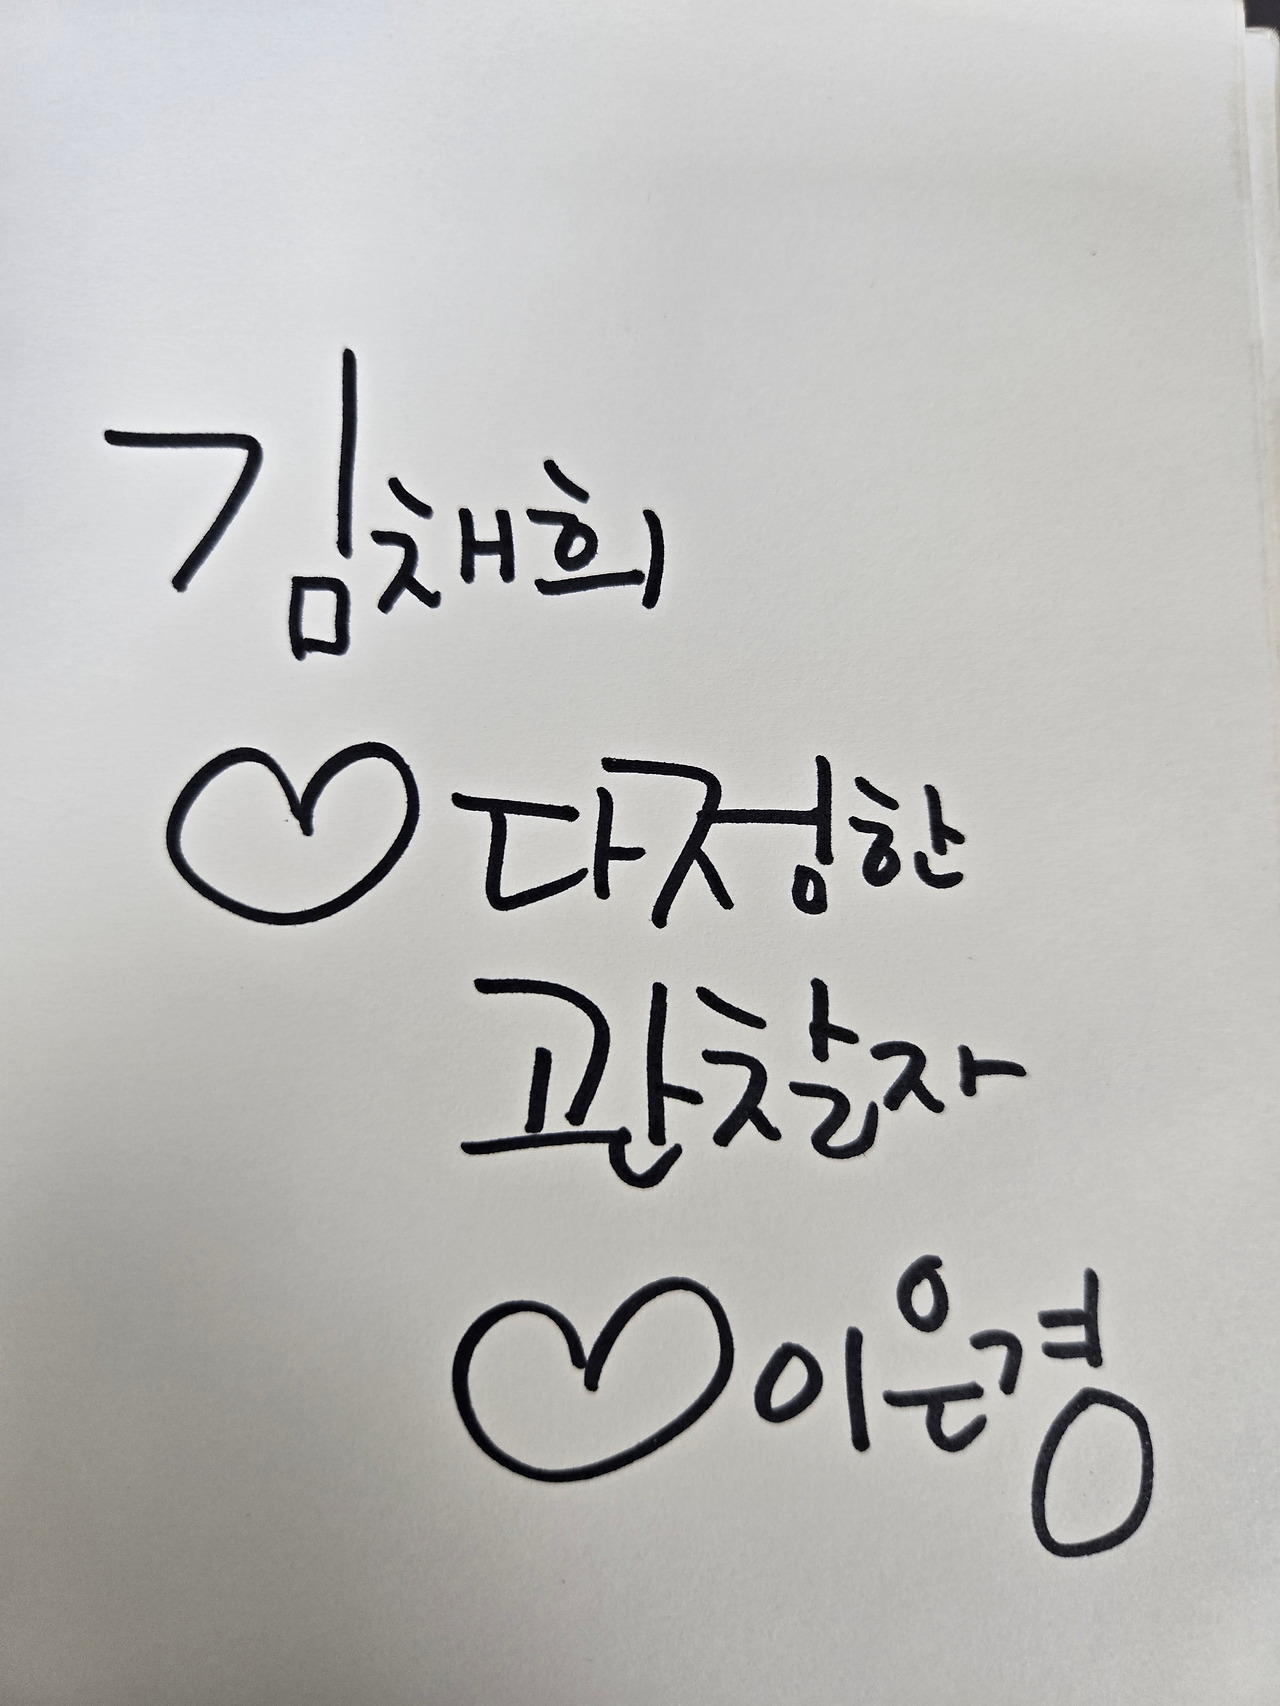 김채희
♡ 다정한
관찰자
♡ 이은경